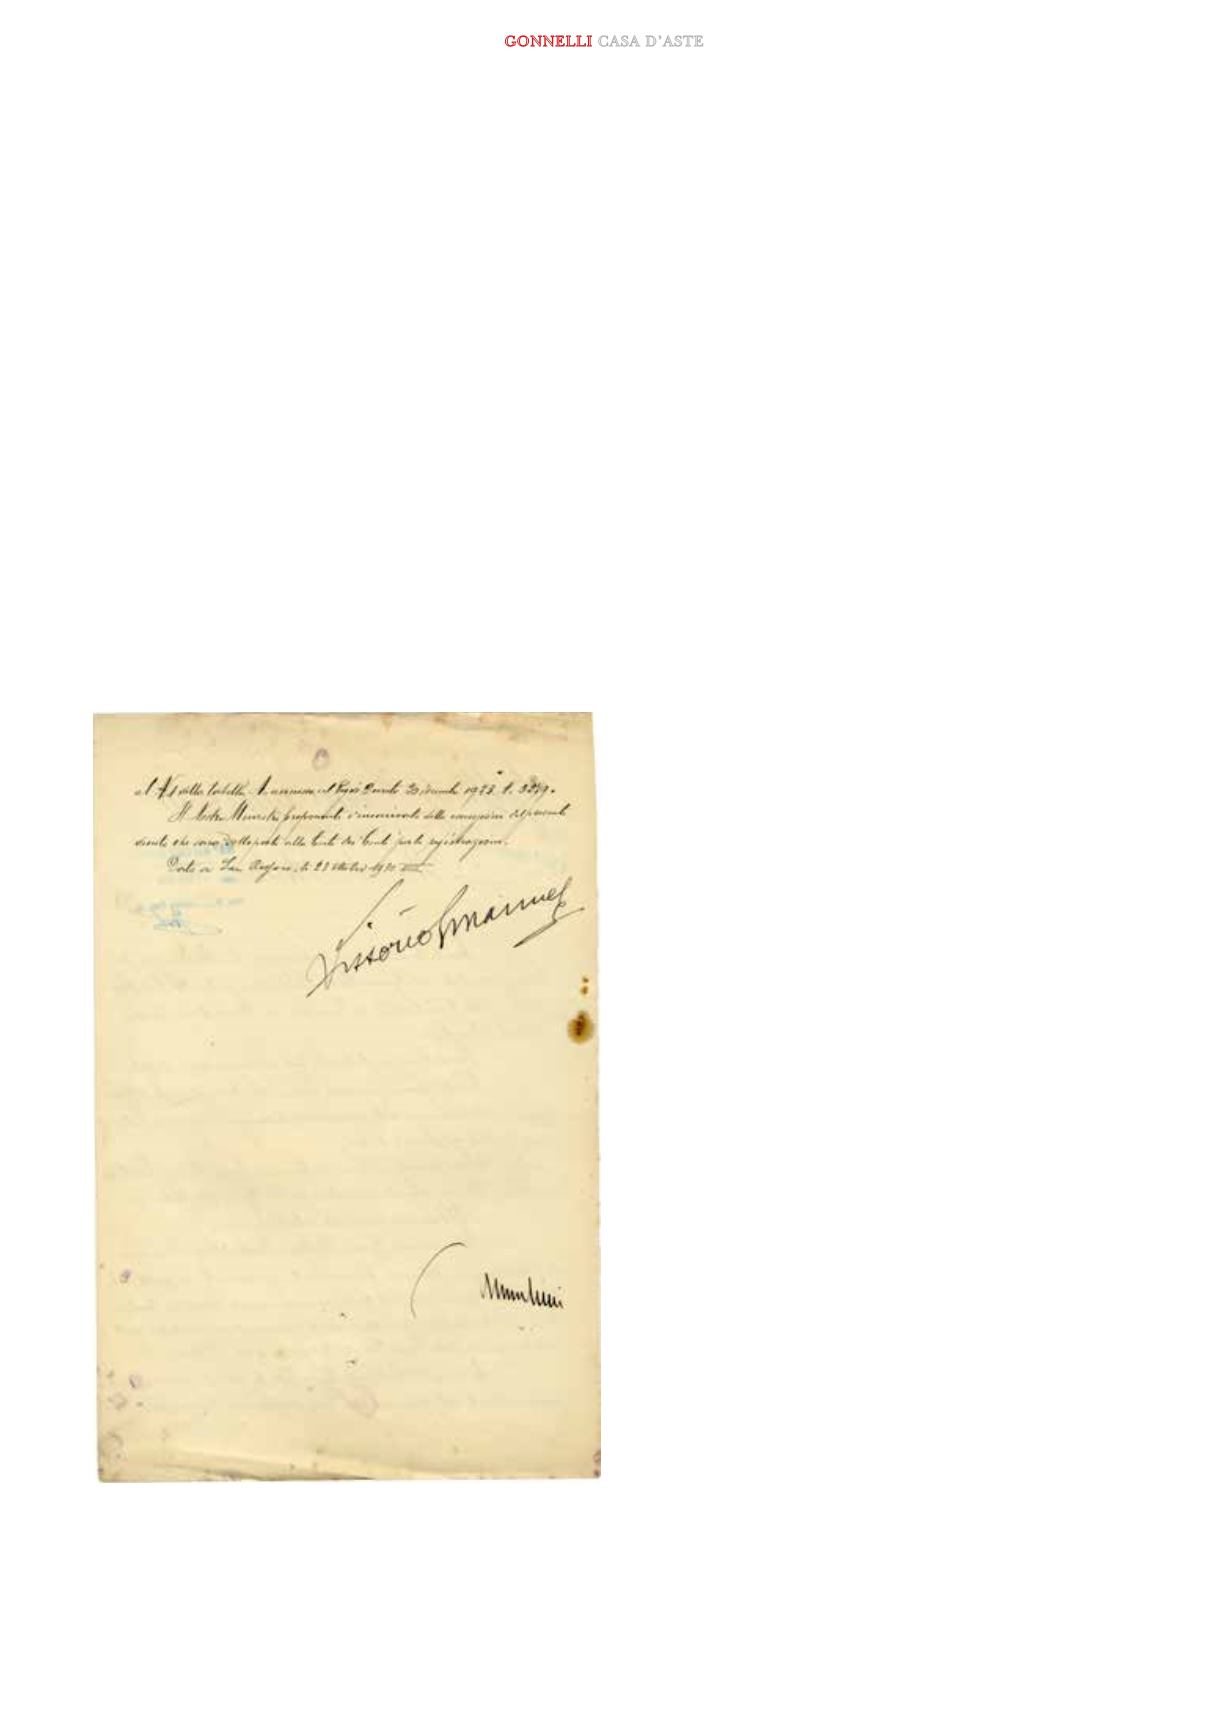 GONNELLI CASA D'ASTE
al della tabella A annessa al Regio Decreto 30 dicembre 1923 N. 3279.
Il Nostro Ministro proponente è incaricato della esecuzione del presente
decreto che sarà sottoposto alla Corte dei Conti per la registrazione.
Dato a San Rossore, li 28 ottobre 1930
Vittorio Emanuele
Mussolini